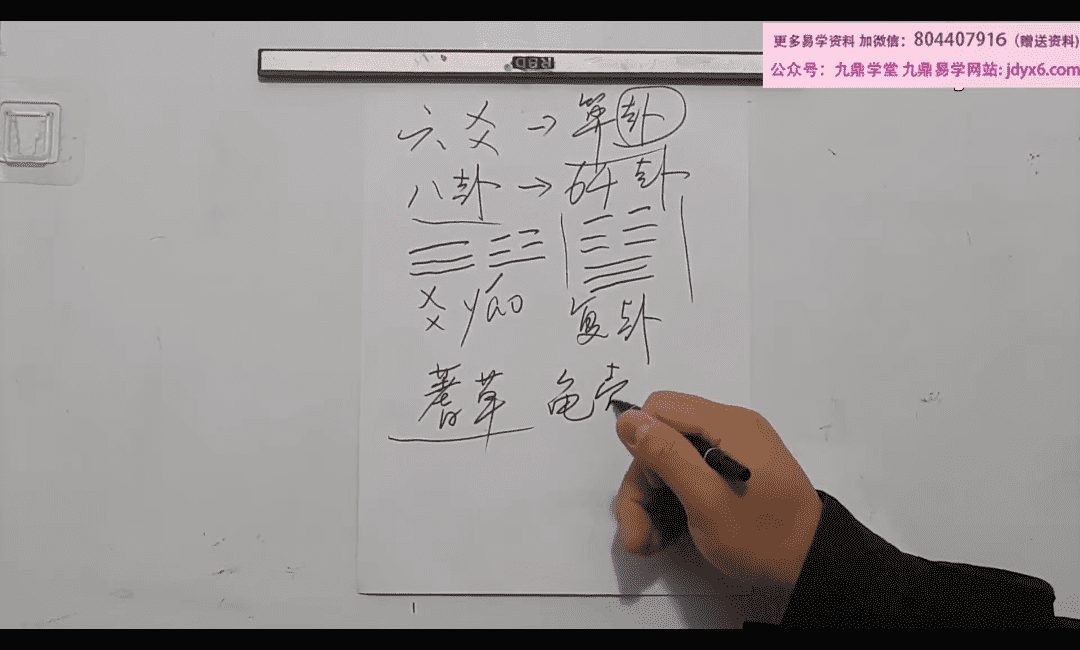 更多易学资料 加微信：804407916（赠送资料）
公众号：九鼎学堂 九鼎易学网站: jdyx6.com
六爻 → 算卦
八卦 → 64卦
爻 yáo 复卦
蓍草 龟壳